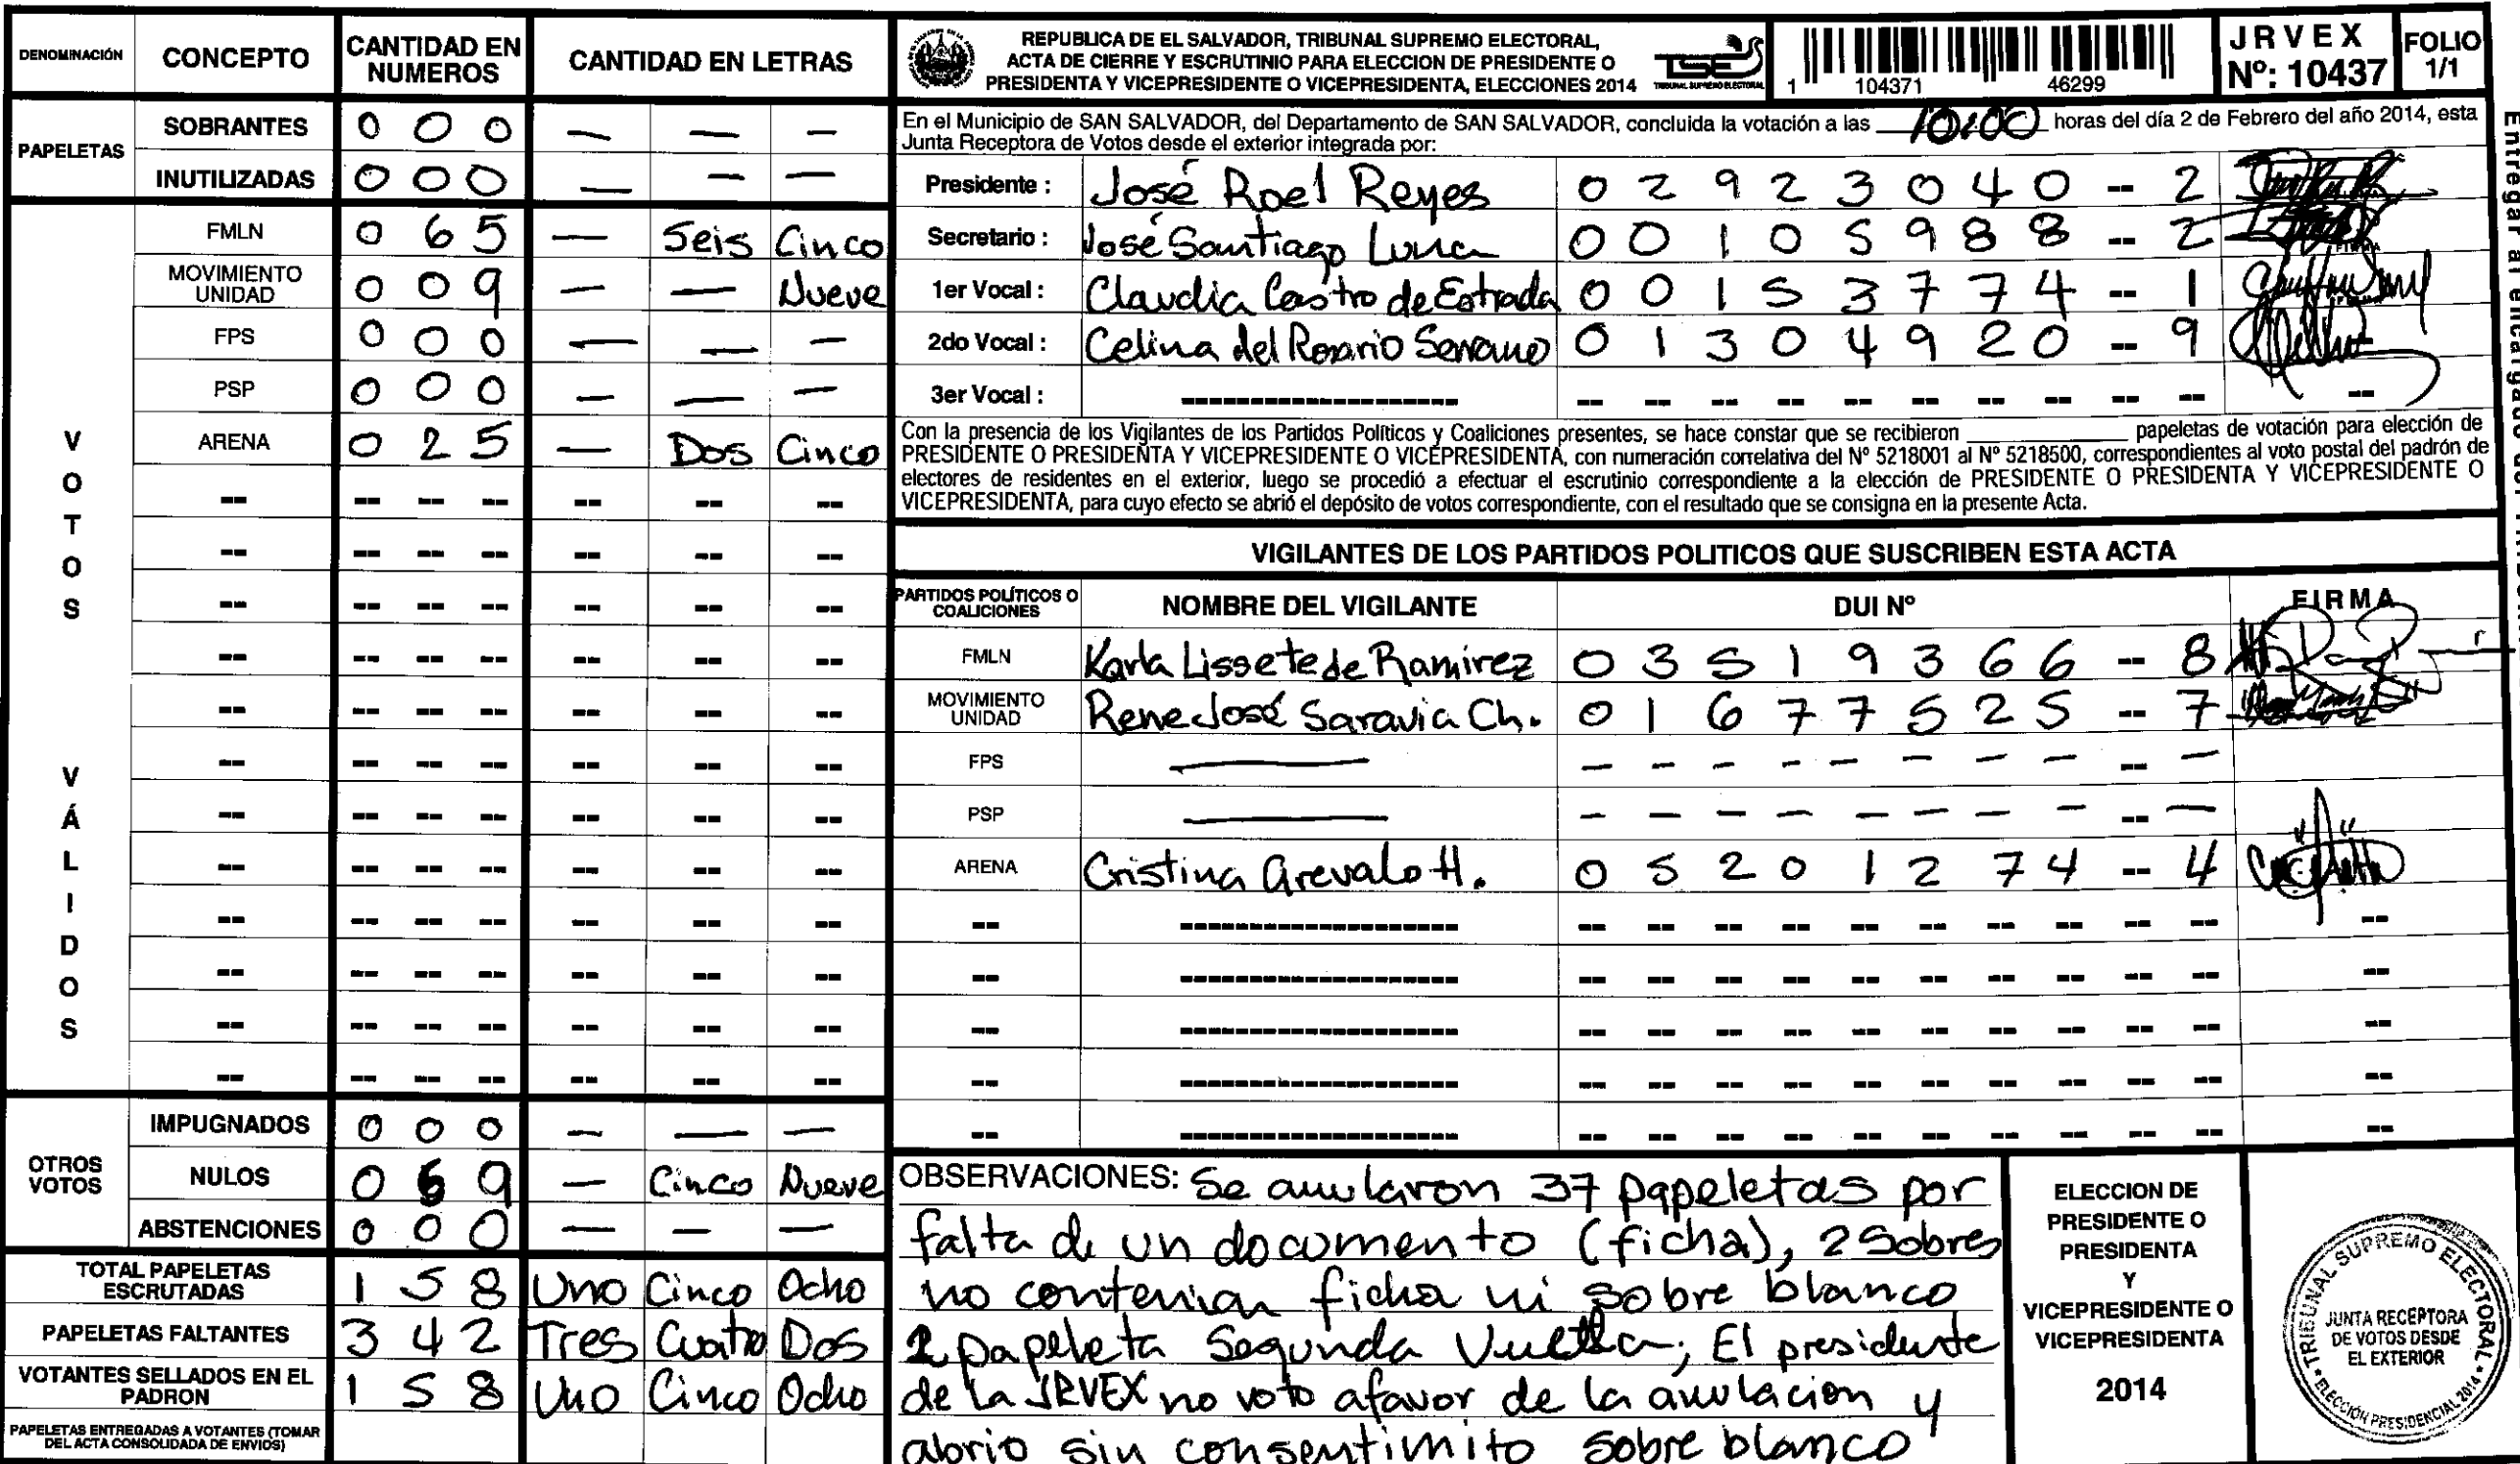 DENOMINACIÓN CONCEPTO CANTIDAD EN NUMEROS CANTIDAD EN LETRAS
PAPELETAS
SOBRANTES 0 0 0 — — —
INUTILIZADAS 0 0 0 — — —
VOTOS VÁLIDOS
FMLN 0 6 5 — Seis Cinco
MOVIMIENTO UNIDAD 0 0 9 — — Nueve
FPS 0 0 0 — — —
PSP 0 0 0 — — —
ARENA 0 2 5 — Dos Cinco
-- -- -- -- -- -- --
-- -- -- -- -- -- --
-- -- -- -- -- -- --
-- -- -- -- -- -- --
-- -- -- -- -- -- --
-- -- -- -- -- -- --
-- -- -- -- -- -- --
-- -- -- -- -- -- --
-- -- -- -- -- -- --
-- -- -- -- -- -- --
-- -- -- -- -- -- --
-- -- -- -- -- -- --
OTROS VOTOS
IMPUGNADOS 0 0 0 — — —
NULOS 0 6 9 — Cinco Nueve
ABSTENCIONES 0 0 0 — — —
TOTAL PAPELETAS ESCRUTADAS 1 5 8 Uno Cinco Ocho
PAPELETAS FALTANTES 3 4 2 Tres Cuatro Dos
VOTANTES SELLADOS EN EL PADRON 1 5 8 Uno Cinco Ocho
PAPELETAS ENTREGADAS A VOTANTES (TOMAR DEL ACTA CONSOLIDADA DE ENVIOS)
REPUBLICA DE EL SALVADOR, TRIBUNAL SUPREMO ELECTORAL,
ACTA DE CIERRE Y ESCRUTINIO PARA ELECCION DE PRESIDENTE O
PRESIDENTA Y VICEPRESIDENTE O VICEPRESIDENTA, ELECCIONES 2014
TSE
TRIBUNAL SUPREMO ELECTORAL
1 104371 46299
JRVEX
Nº: 10437
FOLIO
1/1
En el Municipio de SAN SALVADOR, del Departamento de SAN SALVADOR, concluida la votación a las 10:00 horas del día 2 de Febrero del año 2014, esta
Junta Receptora de Votos desde el exterior integrada por:
Presidente : José Roel Reyes 0 2 9 2 3 0 4 0 -- 2
Secretario : José Santiago Luna 0 0 1 0 5 9 8 8 -- 2
1er Vocal : Claudia Castro de Estrada 0 0 1 5 3 7 7 4 -- 1
2do Vocal : Celina del Rosario Serrano 0 1 3 0 4 9 2 0 -- 9
3er Vocal : ------------------ -- -- -- -- -- -- -- -- -- -- --
Con la presencia de los Vigilantes de los Partidos Políticos y Coaliciones presentes, se hace constar que se recibieron ________ papeletas de votación para elección de
PRESIDENTE O PRESIDENTA Y VICEPRESIDENTE O VICEPRESIDENTA, con numeración correlativa del Nº 5218001 al Nº 5218500, correspondientes al voto postal del padrón de
electores de residentes en el exterior, luego se procedió a efectuar el escrutinio correspondiente a la elección de PRESIDENTE O PRESIDENTA Y VICEPRESIDENTE O
VICEPRESIDENTA, para cuyo efecto se abrió el depósito de votos correspondiente, con el resultado que se consigna en la presente Acta.
VIGILANTES DE LOS PARTIDOS POLITICOS QUE SUSCRIBEN ESTA ACTA
PARTIDOS POLÍTICOS O COALICIONES NOMBRE DEL VIGILANTE DUI Nº FIRMA
FMLN Karla Lissete de Ramirez 0 3 5 1 9 3 6 6 -- 8
MOVIMIENTO UNIDAD Rene José Saravia Ch. 0 1 6 7 7 5 2 5 -- 7
FPS — — — — — — — — — -- —
PSP — — — — — — — — — -- —
ARENA Cristina Arevalo H. 0 5 2 0 1 2 7 4 -- 4
-- ------------------ -- -- -- -- -- -- -- -- -- -- --
-- ------------------ -- -- -- -- -- -- -- -- -- -- --
-- ------------------ -- -- -- -- -- -- -- -- -- -- --
-- ------------------ -- -- -- -- -- -- -- -- -- -- --
-- ------------------ -- -- -- -- -- -- -- -- -- -- --
OBSERVACIONES: Se anularon 37 papeletas por
falta de un documento (ficha), 2 Sobres
no contenian ficha ni sobre blanco
papeleta Segunda Vuelta; El presidente
de la JRVEX no voto afavor de la anulacion y
abrio sin consentimito sobre blanco
ELECCION DE
PRESIDENTE O
PRESIDENTA
Y
VICEPRESIDENTE O
VICEPRESIDENTA
2014
TRIBUNAL SUPREMO ELECTORAL
JUNTA RECEPTORA
DE VOTOS DESDE
EL EXTERIOR
ELECCIÓN PRESIDENCIAL 2014
Entregar al encargado del